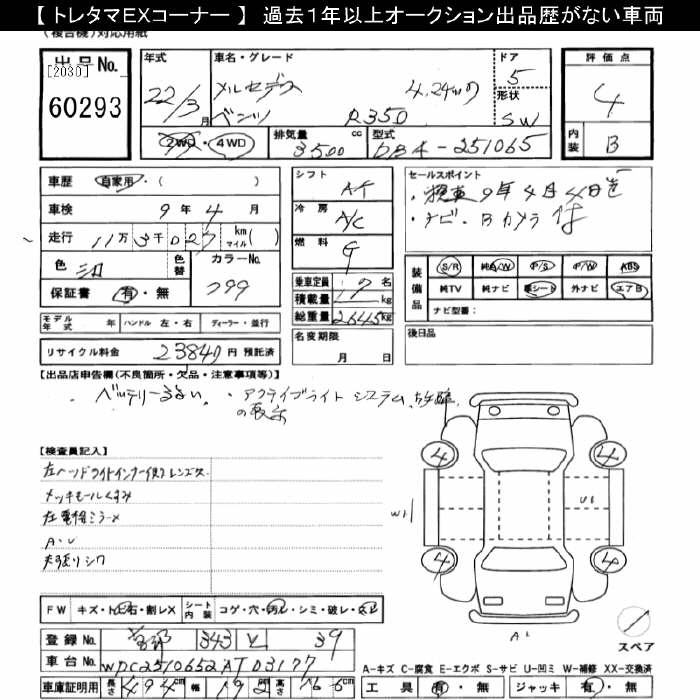 【 トレタマEXコーナー 】 過去1年以上オークション出品歴がない車両
(複合機)対応用紙
出品No. [2030] 60293
年式 22/3月
車名・グレード メルセデス ベンツ 4.24WD R350
ドア 5
形状 SW
2WD・4WD
排気量 3500 cc
型式 DBA-251065
評価点 4
内装 B
車歴 自家用・( )
車検 9年 4月
走行 11万3千027 km マイル( )
色
色替
カラーNo. 799
保証書 有・無
モデル年式 年 ハンドル 左・右 ディーラー・並行
リサイクル料金 23840円 預託済
シフト AT
冷房 A/C
燃料 G
乗車定員 7名
積載量 kg
総重量 2645kg
名変期限 月 日
セールスポイント
・検車9年4月4日迄
・ナビ・Bカメラ付
装備品 S/R 純A/W P/S P/W ABS
純TV 純ナビ 革シート 外ナビ エアB
ナビ型番:
後日品
【出品店申告欄(不良箇所・欠品・注意事項等)】
・バッテリーよわい。・アクティブライトシステム故障
の表示
【検査員記入】
左ヘッドライトインナー レンズ
メッキモールくすみ
左電格ミラー
A・U
シワ
FW キズ・トビ石・割レX シート内装 コゲ・穴・汚レ・シミ・破レ・スレ
登録No. 343 39
車台No. WDC2510652A103177
車庫証明用 長さ 494cm 幅 192 高さ 166cm
4
4
4
4
W1
U1
A1
スペア
A-キズ C-腐食 E-エクボ S-サビ U-凹ミ W-補修 XX-交換済
工具 有・無 ジャッキ 有・無